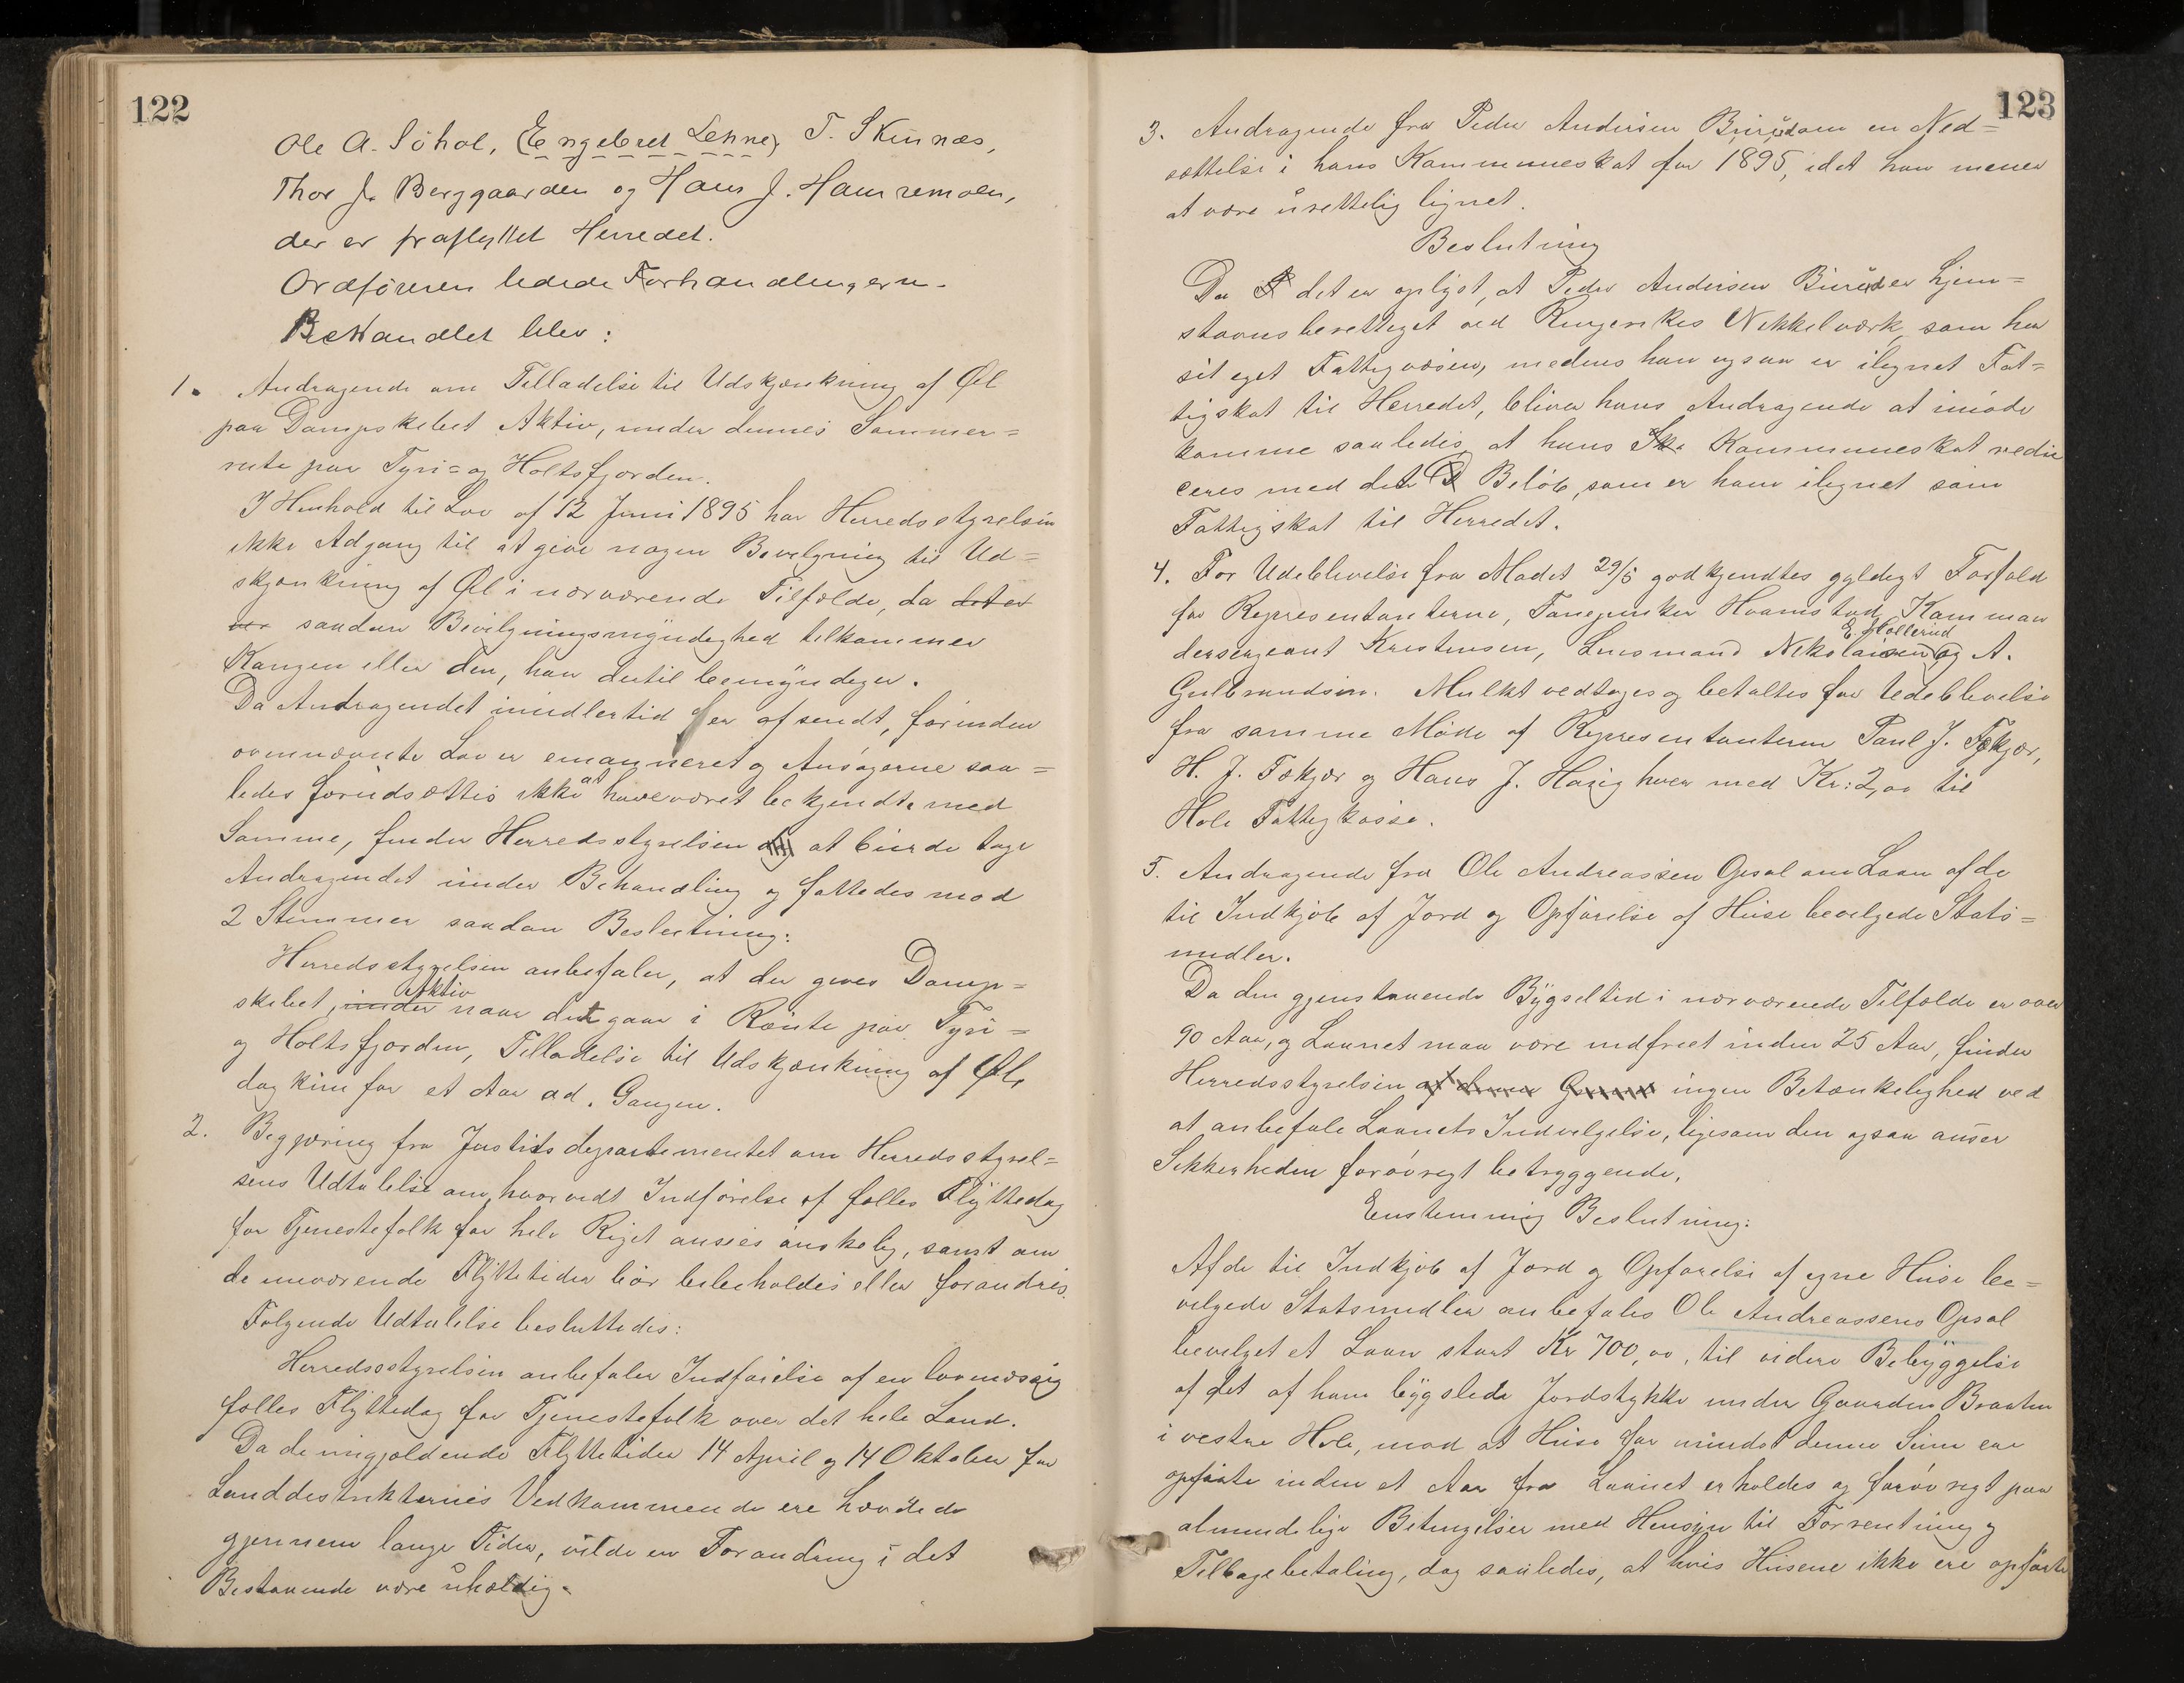 122
Ole A. Söhol, (Engebret Lehne) T. Skinnæs,
Thor J. Berggaarden og Hans J. Hamremoen,
der er fraflyttet Herredet.
Ordföreren ledede Forhandlingern.
Behandlet blev:
1. Andragende om Tilladelse til Udskjænkning af Øl
paa Dampskibet Aktiv, under dennes Sommer=
rute paa Tyri= og Holtsfjorden.
I Henhold til Lov af 12 Juni 1895 har Herredsstyrelsen
ikke Adgang til at give nogen Bevilgning til Ud=
skjænkning af Øl i nærværende Tilfælde, da det er
saadan Bevilgningsmyndighed tilkommer
Kongen eller den, han dertil bemyndiger.
Da Andragendet imidlertid er afsendt, forinden
ovennævnte Lov er emanneret og Ansøgerne saa=
ledes forudsættes ikke at have været bekjendte med
Samme, finder Herredsstyrelsen at burde tage
Andragendet under Behandling og fattedes mod
2 Stemmer saadan Beslutning:
Herredsstyrelsen anbefaler, at der gives Damp=
skibet, under Aktiv naar det gaar i Route paa Tyri=
og Holtsfjorden, Tilladelse til Udskjænkning af Øl,
dog kun for et Aar ad Gangen.
2. Begjæring fra Justitsdepartementet om Herredsstyrel=
sens Udtalelse om, hvorvidt Indførelse af fælles Flyttedag
for Tjenestefolk for hele Riget ansees ønskelig, samt om
de nuværende Flyttetider bör bibeholdes eller forandres.
Følgende Udtalelse besluttedes:
Herredsstyrelsen anbefaler Indførelse af en lovmæssig
fælles Flyttedag for Tjenestefolk over det hele Land.
Da de nugjældende Flyttetider 14 April og 14 Oktober for
Landdistrikternes Vedkommende ere hævdede
gjennem lange Tider, vilde en Forandring i det
Bestaaende være uheldig.
123
3. Andragende fra Peder Andersen Burud om en Ned=
sættelse i hans Kommuneskat for 1895, idet han mener
at være urettelig lignet.
Beslutning
Da det er oplyst, at Peder Andersen Burud er hjem=
stavnsberettiget ved Ringerikes Nikkelværk, som har
sit eget Fattigvæsen, medens han ogsaa er ilignet Fat=
tigskat til Herredet, bliver hans Andragende at imöde
komme saaledes, at hans Ska Kommuneskat redu
ceres med det Belöb, som er ham ilignet som
Fattigskat til Herredet.
4. For Udeblivelse fra Mødet 29/5 godkjendtes gyldigt Forfald
for Representanterne, Fanejunker Hvamstad, Komman
dersergeant Kristensen, Lensmand Nikolaisen, E. Hollerud og A.
Gulbrandsen. Mulkt vedtoges og betaltes for Udeblivelse
fra samme Möde af Representanterne Paul J. Fekjær,
H. J. Fekjær og Hans J. Haug hver med Kr: 2,00 til
Hole Fattigkasse.
5. Andragende fra Ole Andreassen Opsal om Laan af de
til Indkjöb af Jord og Opførelse af Huse bevilgede Stats=
midler.
Da den gjenstaaende Bygseltid i nærværende Tilfælde er over
90 Aar, og Laanet maa være indfriet inden 25 Aar, finder
Herredsstyrelsen af denne Grund ingen Betænkelighed ved
at anbefale Laanets Indvilgelse, ligesom den ogsaa anser
Sikkerheden forövrigt betryggende.
Enstemmig Beslutning:
Af de til Indkjöb af Jord og Opførelse af egne Huse be=
vilgede Statsmidler anbefales Ole Andreassens Opsal
bevilget et Laan stort Kr 700,00, til videre Bebyggelse
af det af ham bygslede Jordstykke under Gaarden Braaten
i vestre Hole, mod at Huse for mindst denne Sum ere
opførte inden et Aar fra Laanet erholdes og forövrigt paa
almindelige Betingelser med Hensyn til Forrentning og
Tilbagebetaling, dog saaledes, at hvis Husene ikke ere opførte